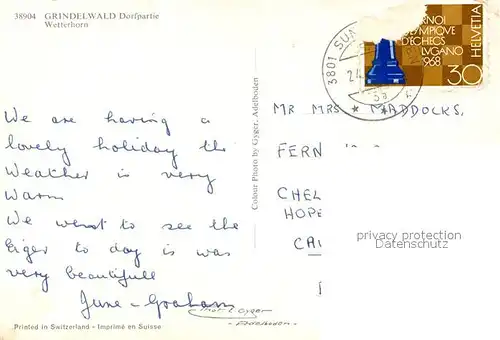 38904 GRINDELWALD Dorfpartie
Wetterhorn
We are having a
lovely holiday the
Weather is very
Warm
We whent to see the
Eiger to day is was
very beautifull
June - Graham
Printed in Switzerland - Imprimé en Suisse
Colour Photo by Gyger, Adelboden
3801
24
HELVETIA
D'ECHECS
LUGANO
1968
30
MR MRS MADDOCKS.
FERN
CHEL
HOPE
privacy protection
Datenschutz
Gyger
- Adelboden -